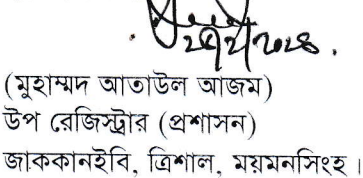 (মুহাম্মদ আতাউল আজম)
উপ রেজিস্ট্রার (প্রশাসন)
জাককানইবি, ত্রিশাল, ময়মনসিংহ।